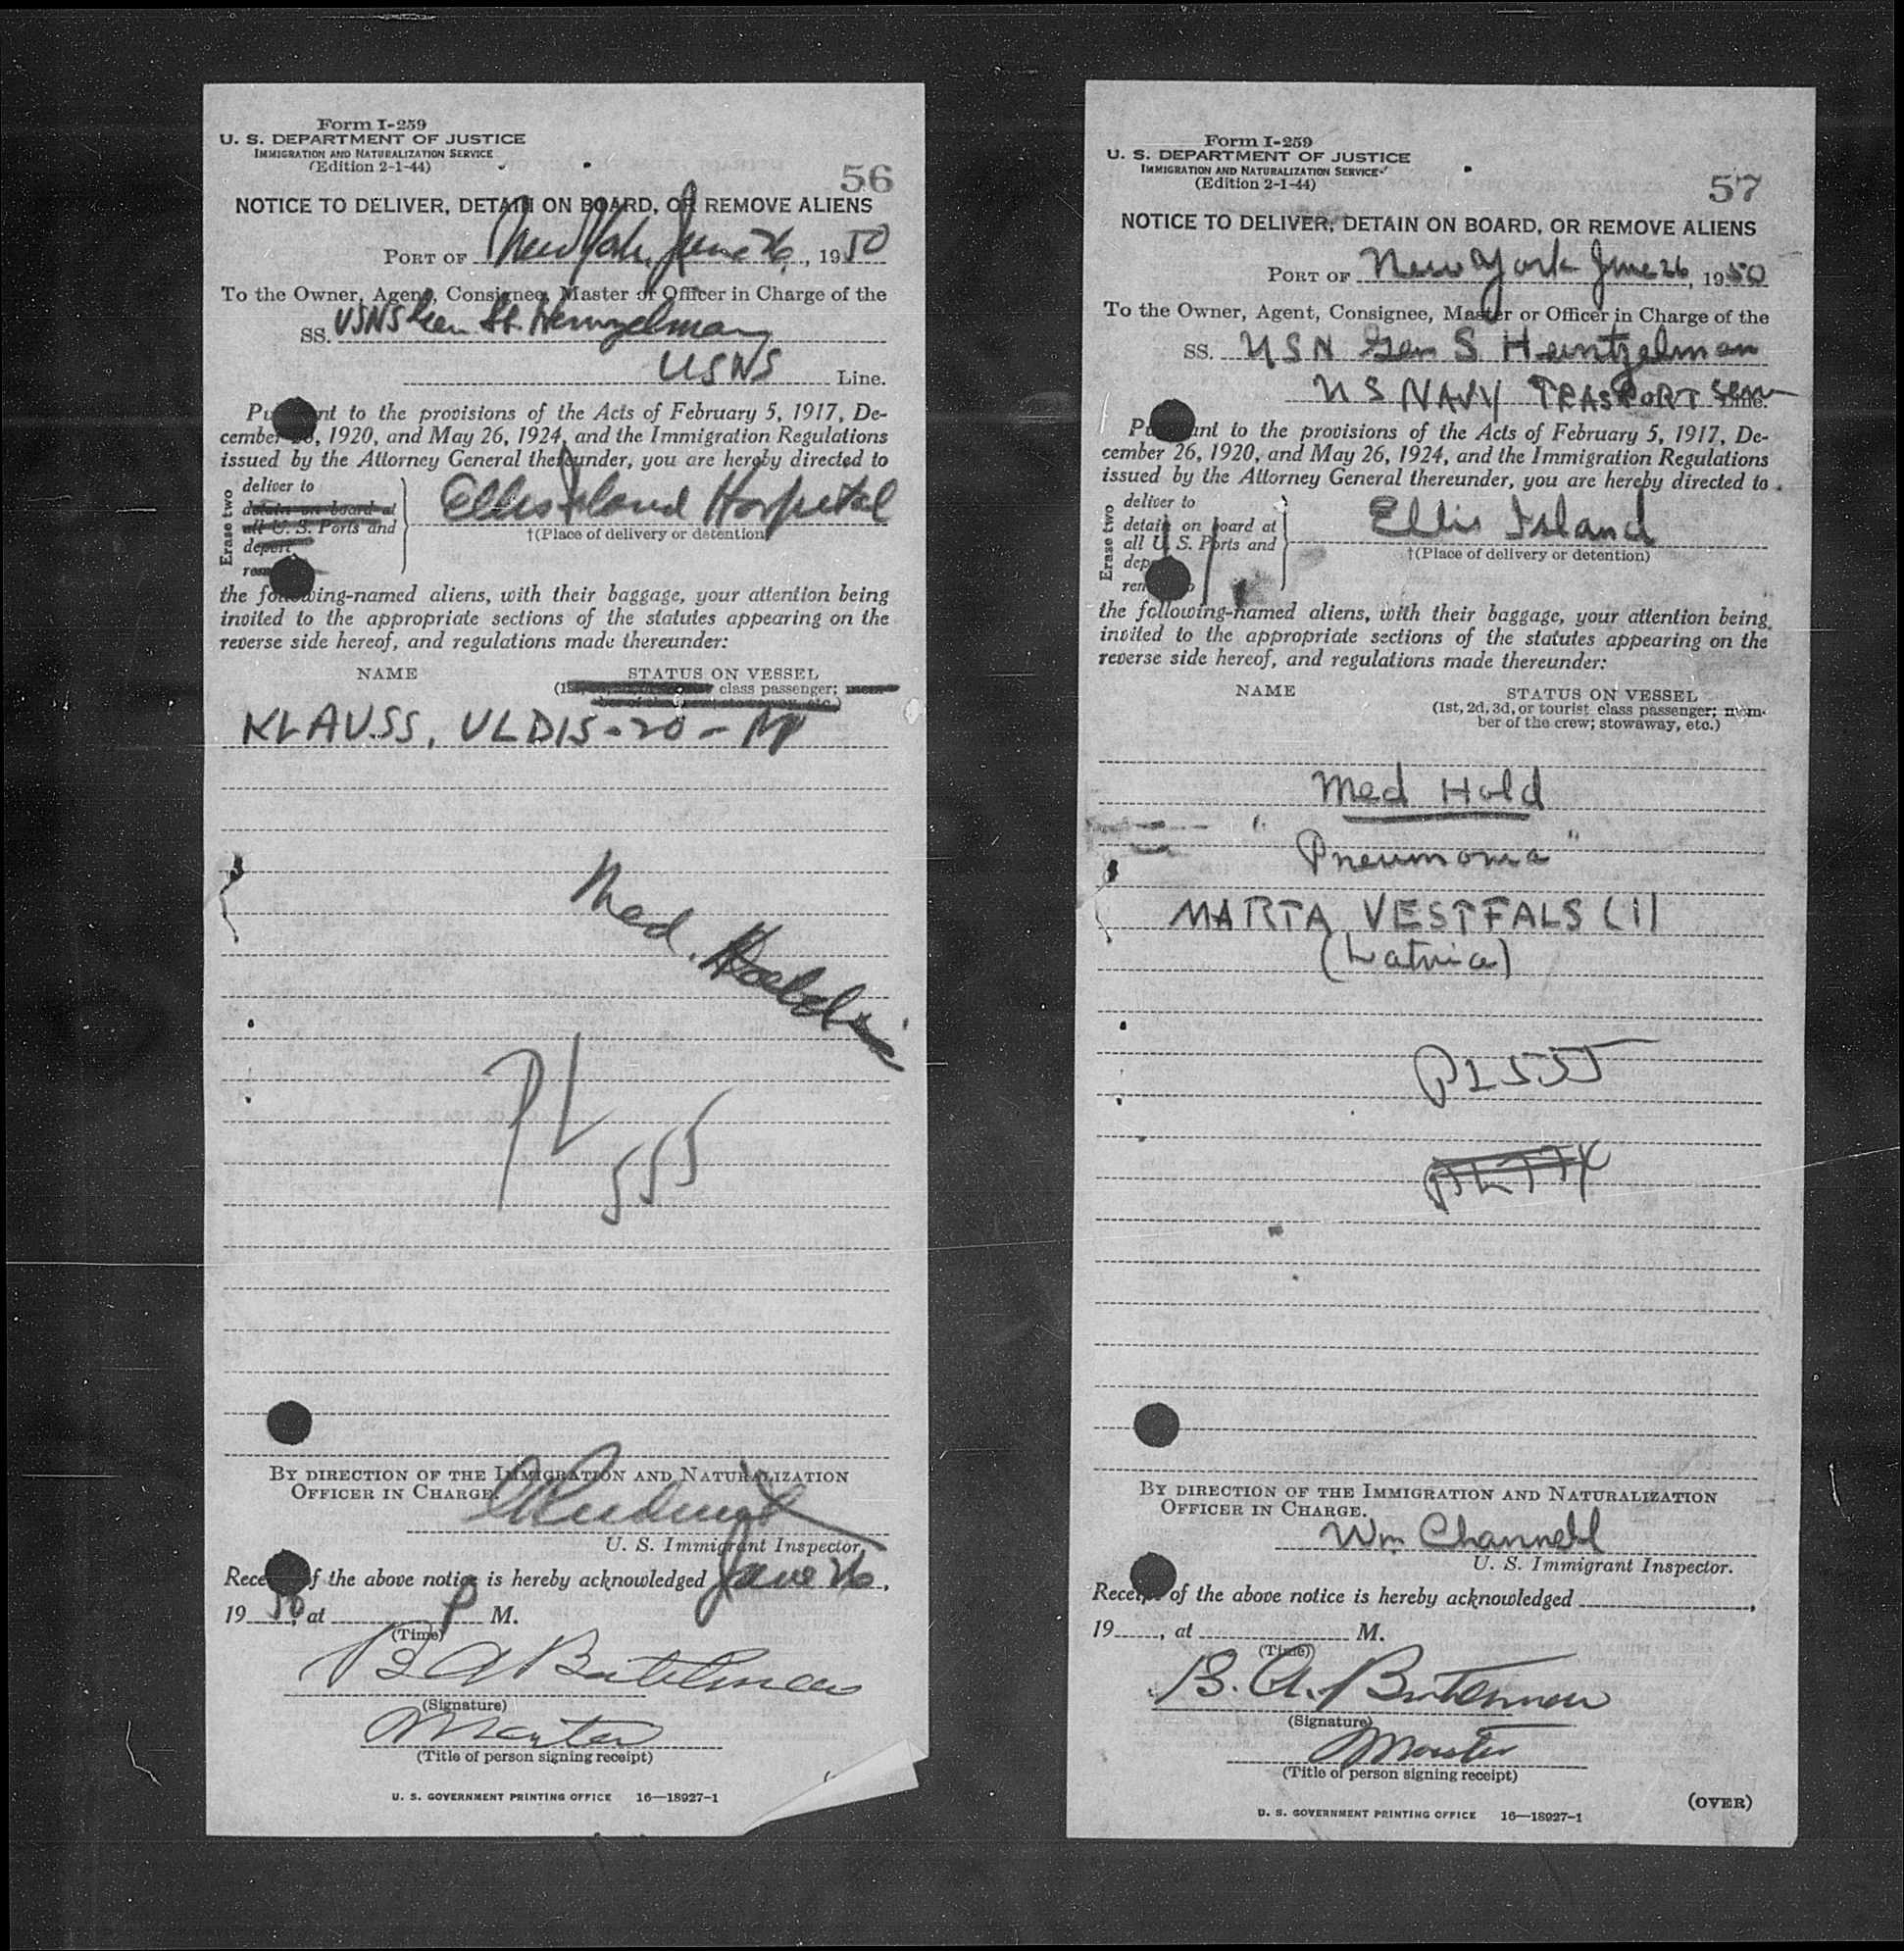 Form I-259
U. S. DEPARTMENT OF JUSTICE
IMMIGRATION AND NATURALIZATION SERVICE
(Edition 2-1-44)
56
NOTICE TO DELIVER, DETAIN ON BOARD, OR REMOVE ALIENS
PORT OF New York, June 26, 1950
To the Owner, Agent, Consignee, Master or Officer in Charge of the
SS. USNS Gen
USNS Line.
Pu nt to the provisions of the Acts of February 5, 1917, De-
cember , 1920, and May 26, 1924, and the Immigration Regulations
issued by the Attorney General thereunder, you are hereby directed to
Erase two
deliver to
detain on board at
all U. S. Ports and
deport
Ellis Island Hospital
†(Place of delivery or detention)
the following-named aliens, with their baggage, your attention being
invited to the appropriate sections of the statutes appearing on the
reverse side hereof, and regulations made thereunder:
NAME STATUS ON VESSEL
class passenger;
KLAUSS, ULDIS - 20 - M
Med.
PL
555
BY DIRECTION OF THE IMMIGRATION AND NATURALIZATION
OFFICER IN CHARGE.
U. S. Immigrant Inspector.
Rece f the above notice is hereby acknowledged June 26,
1950, at P M.
(Time)
B A Bateman
(Signature)
Master
(Title of person signing receipt)
U. S. GOVERNMENT PRINTING OFFICE 16—18927-1
Form I-259
U. S. DEPARTMENT OF JUSTICE
IMMIGRATION AND NATURALIZATION SERVICE
(Edition 2-1-44)
57
NOTICE TO DELIVER, DETAIN ON BOARD, OR REMOVE ALIENS
PORT OF New York June 26, 1950
To the Owner, Agent, Consignee, Master or Officer in Charge of the
SS. USN Gen S Heintzelman
US NAVY TRASPORT Serv Line.
P ant to the provisions of the Acts of February 5, 1917, De-
cember 26, 1920, and May 26, 1924, and the Immigration Regulations
issued by the Attorney General thereunder, you are hereby directed to
Erase two
deliver to
detain on board at
all U. S. Ports and
dep
rem
Ellis Island
†(Place of delivery or detention)
the following-named aliens, with their baggage, your attention being
invited to the appropriate sections of the statutes appearing on the
reverse side hereof, and regulations made thereunder:
NAME STATUS ON VESSEL
(1st, 2d, 3d, or tourist class passenger; mem-
ber of the crew; stowaway, etc.)
Med Hold
"Pneumonia"
MARTA VESTFALS (1)
(Latvia)
PL 555
BY DIRECTION OF THE IMMIGRATION AND NATURALIZATION
OFFICER IN CHARGE.
Wm Channell
U. S. Immigrant Inspector.
Receipt of the above notice is hereby acknowledged ,
19 , at M.
(Time)
B. A. Bateman
(Signature)
Master
(Title of person signing receipt)
(OVER)
U. S. GOVERNMENT PRINTING OFFICE 16—18927-1